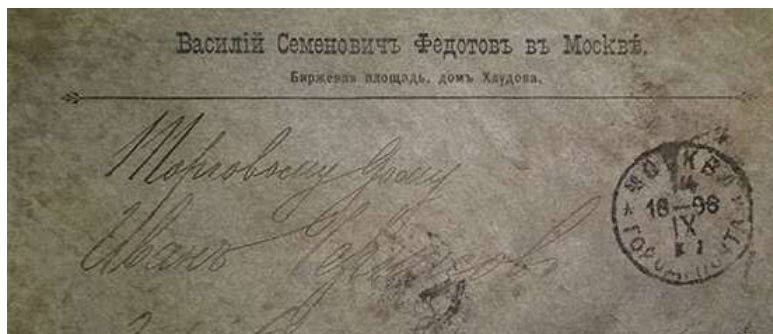 Василій Семеновичъ Федотовъ въ Москвѣ.
Биржевая площадь, домъ Хлудова.
Торговому Дому
Иванъ
МОСКВА
16–96
IX
ГОРОД. ПОЧТА